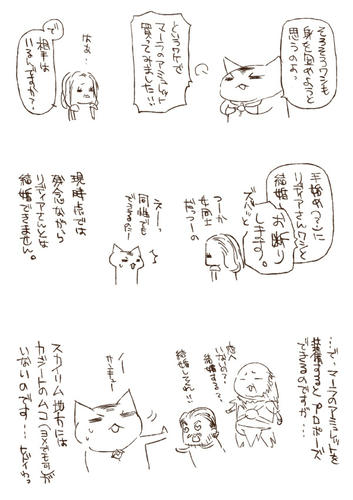 そろそろワシも
身を固めようと
思うのよっ
というワケで
マーラのアミュレット
買ってみました!!
はぁ…
で
相手は
いるんですか?
手始め(マテ)に
リディアさんワシと
結婚
お断り
します。
ズベっと
つーか
女同士
だっつーの
えーっ
同性でも
できるのにー
現時点では
残念ながら
リディアさんとは
結婚できません。
…で、マーラのアミュレットを
装備するとプロポーズ
できるのですが…
結婚する?
結婚してくれ!!
ノー
サンキュー
スカイリム地方には
カジートのムコ
いないのです…